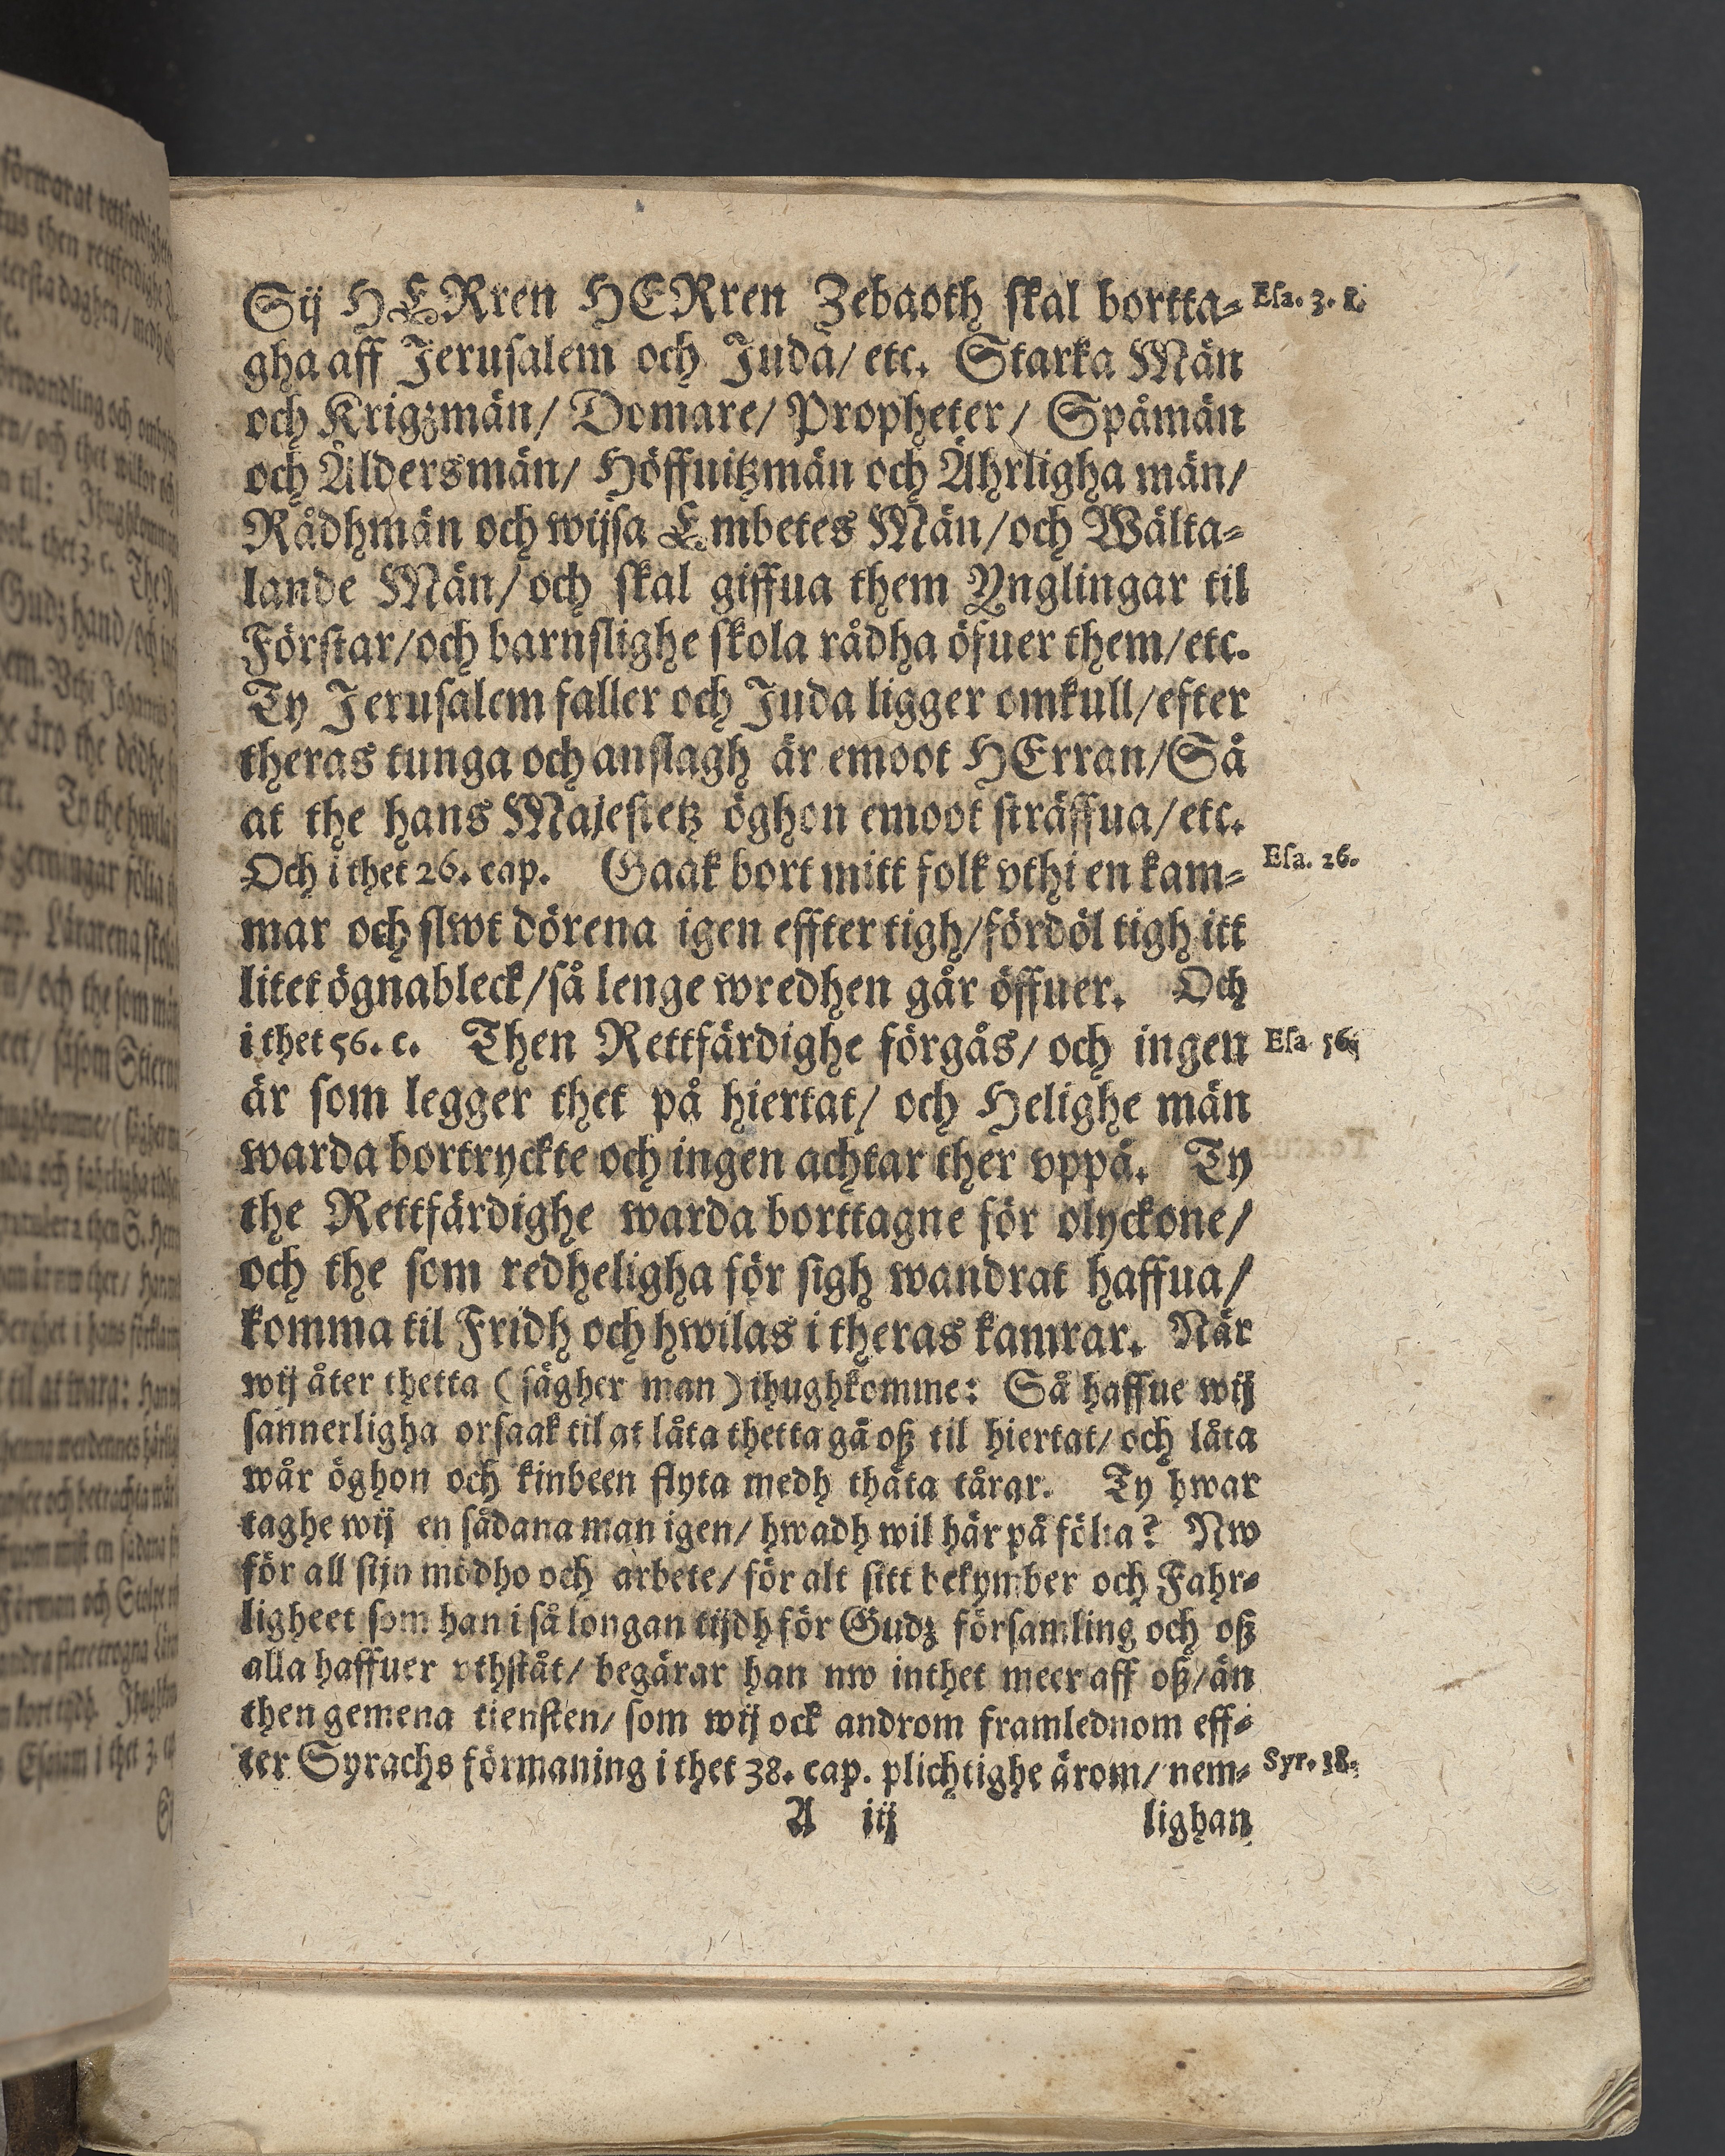 Sij HERren HERren Zebaoth skal bortta-
Esa. 3.
gha aff Jerusalem och Juda/ etc. Starka Män
och Krigzmän/ Domare/ Propheter/ Spåmän
och Äldersmän/ Höffuitzmän och Ährligha män/
Rådhmän och wijsa Embetes Män/och Wälta-
lande Män/ och skal giffua them Ynglingar til
Förstar/och barnslighe skola rådha öfuer them/etc.
Ty Jerusalem faller och Juda ligger omkull/efter
theras tunga och anslagh är emoot HErran/Så
at the hans Majestetz öghon emoot sträffua/etc.
Och i thet 26. cap. Gaak bort mitt folk vthi en kam-
Esa. 26.
mar och slwt dörena igen effter tigh/fördöl tigh itt
litet ögnableck/så lenge wredhen går öffuer. Och
i thet 56. c. Then Rettfärdighe förgås/ och ingen
Esa 56.
är som legger thet på hiertat/ och Helighe män
warda bortryckte och ingen achtar ther vppå. Ty
the Rettfärdighe warda borttagne för olyckone/
och the som redheligha för sigh wandrat haffua/
komma til Fridh och hwilas i theras kamrar. När
wij åter thetta (sägher man) ihughkomme: Så haffue wij
sannerligha orsaak til at låta thetta gå oß til hiertat/ och låta
wår öghon och kinbeen flyta medh thåta tårar. Ty hwar
taghe wij en sådana man igen/ hwadh wil här på fölia? Nw
för all sijn mödho och arbete/ för alt sitt bekymber och Fahr-
ligheet som han i så longan tijdh för Gudz församling och oß
alla haffuer vthståt/ begärar han nw inthet meer aff oß/än
then gemena tiensten/ som wij ock androm framlednom eff-
ter Syrachs förmaning i thet 38. cap. plichtighe ärom/ nem-
Syr. 38.
A iij lighan